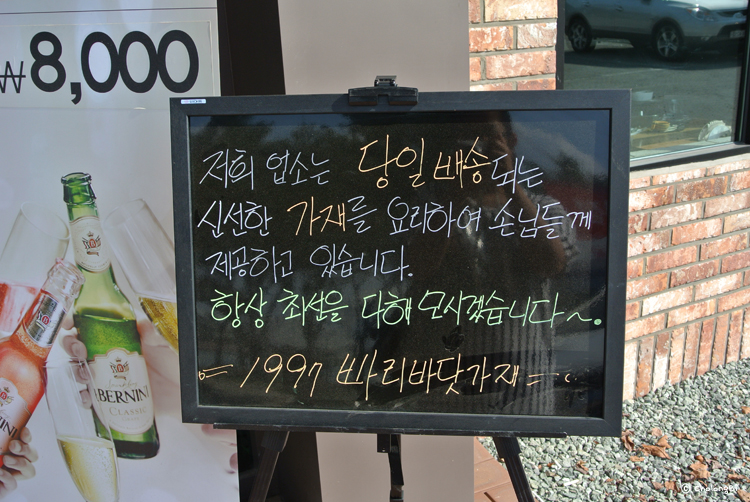 ₩8,000
저희 업소는 당일배송되는
신선한 가재를 요리하여 손님들께
제공하고 있습니다.
항상 최선을 다해 모시겠습니다~.
= 1997 빠리바닷가재 =
BERNINI
CLASSIC